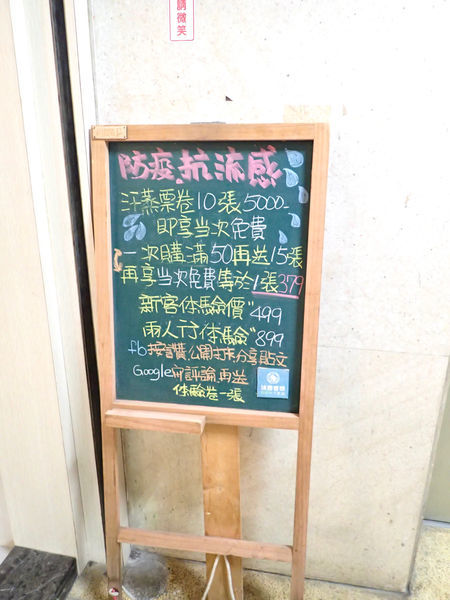 請微笑
防疫抗流感
汗蒸票卷10張5000-
即享当次免費
一次購滿50再送15張
再享当次免費等於1張379
新客体驗價"499
兩人行体驗"899
fb按讚公開打卡分享貼文
Google寫評論再送
体驗卷一張